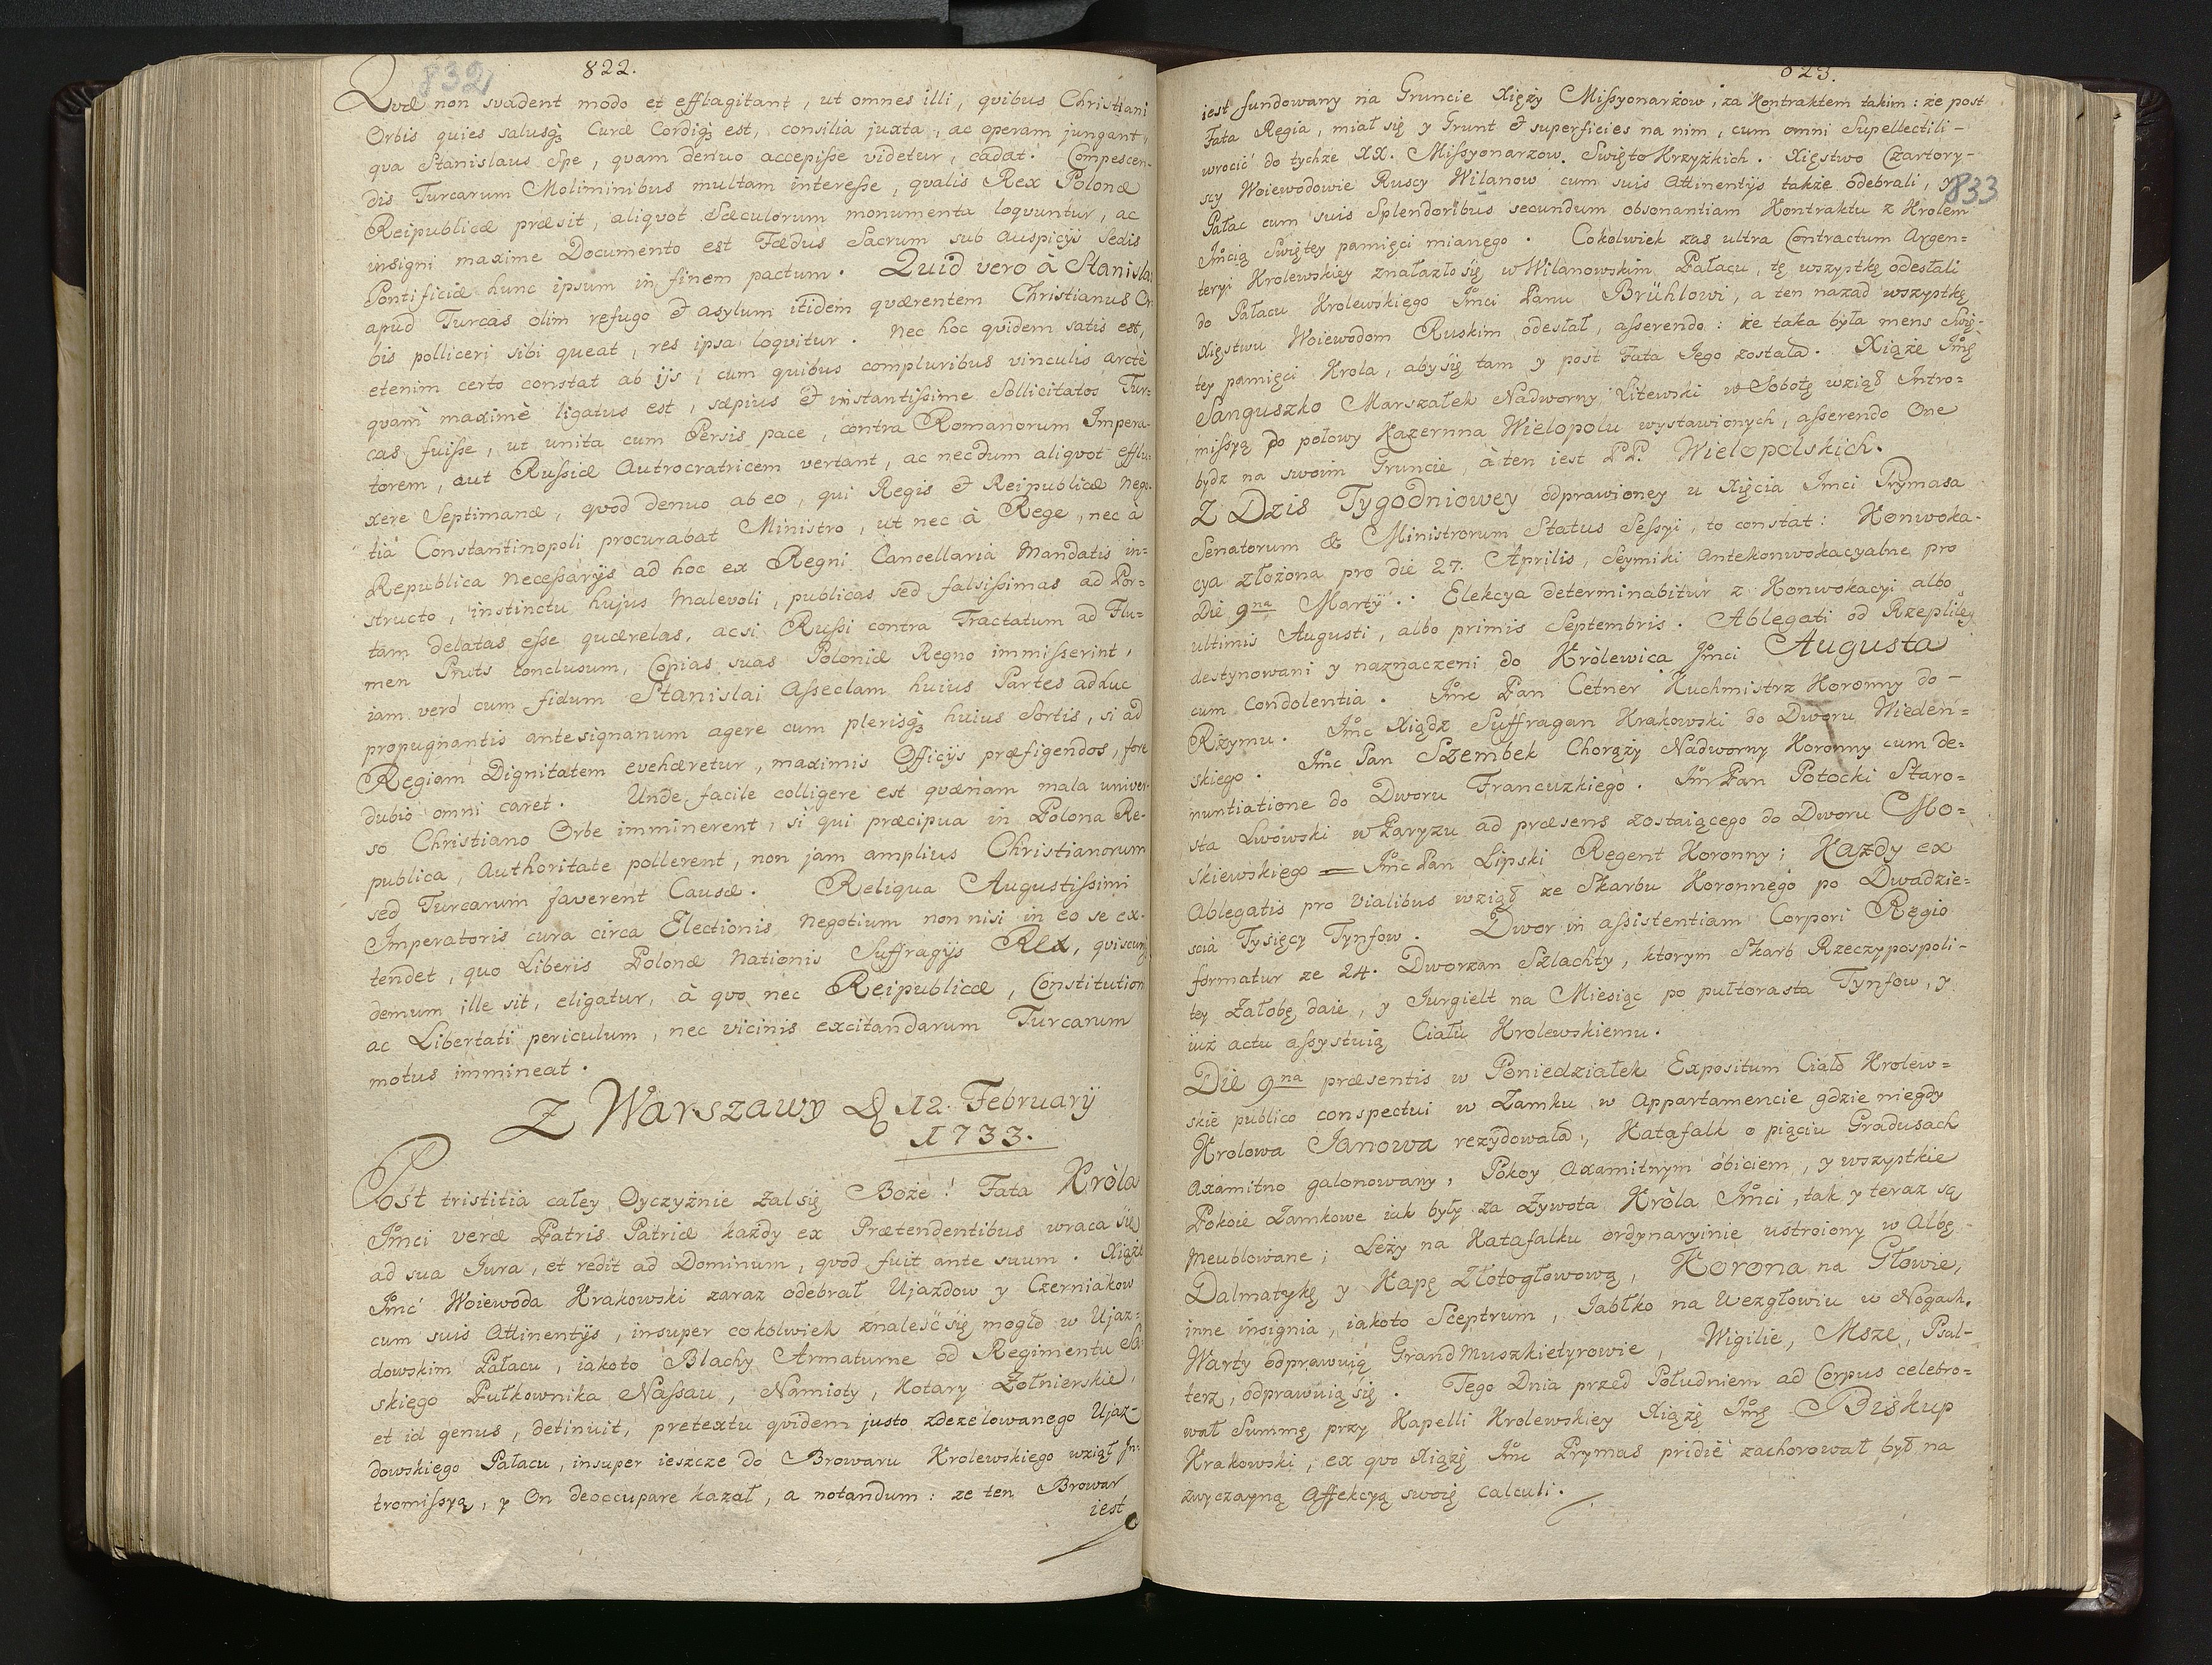 832
822.
Quæ non svadent modo et efflagitant, ut omnes illi, quibus Christiani
Orbis quies salusq; Curæ Cordiq; est, consilia juxta, ac operam jungant,
qva Stanislaus Spe, quam denuo accepisse videtur, cadat. Compescen-
dis Turcarum Moliminibus multam interesse, qvalis Rex Polonæ
Reipublicæ præsit, aliqvot Sæculorum monumenta loqvuntur, ac
insigni maxime Documento est Fædus Sacrum sub Auspicijs Sedis
Pontificiæ hunc ipsum in finem pactum. Quid vero à Stanisla
apud Turcas olim refugo & asylum itidem qværentem Christianus Or
bis polliceri sibi queat, res ipsa loqvitur. Nec hoc qvidem satis est,
etenim certo constat ab ijs, cum quibus compluribus vinculis arctè
qvam maximè ligatus est, sæpius & instantissime Sollicitatos Tur=
cas fuisse, ut unita cum Persis pace, contra Romanorum Impera-
torem, aut Russiæ Autrocratricem vertant, ac necdum aliqvot efflu-
xere Septimanæ, qvod denuo ab eo, qui Regis & Reipublicæ nego-
tia Constantinopoli procurabat Ministro, ut nec à Rege, nec à
Republica necessarijs ad hoc ex Regni Cancellaria Mandatis in=
structo, instinctu hujus Malevoli, publicas sed falsissimas ad Por=
tam delatas esse quærelas, acsi Russi contra Tractatum ad Flu=
men Pruts conclusum, Copias suas Poloniæ Regno immisserint,
iam verò cum fidum Stanislai Asseclam huius Partes adduc
propugnantis antesignanum agere cum plerisq; huius Sortis, si ad
Regiam Dignitatem eveharetur, maximis Officijs præfigendos, fore
dubiò omni caret. Unde facile colligere est quænam mala univer-
so Christiano Orbe imminerent, si qui præcipua in Polona Re-
publica, Authoritate pollerent, non jam amplius Christianorum
sed Turcarum faverent Causæ. Reliqua Augustissimi
Imperatoris cura circa Electionis negotium non nisi in eo se ex-
tendet, quo Liberis Polonæ Nationis Suffragijs Rex, quiscunq
demum ille sit, eligatur, à qvo nec Reipublicæ, Constitution
ac Libertati periculum, nec vicinis excitandarum Turcarum
motus immineat.
Z Warszawy D 12. February
1733.
Post tristitia całey Oyczyźnie żal się Boże! Fata Króla
Jmci veræ Patris Patriæ każdy ex Prætendentibus wraca się
ad sua Jura, et redit ad Dominum, qvod fuit ante suum. Xiążę
Jmć Woiewoda Krakowski zaraz odebrał Ujazdow y Czerniakow
cum suis Attinentijs, insuper cokolwiek znaleść się mogło w Ujaz=
dowskim Pałacu, iakoto Blachy Armaturne od Regimentu
skiego Pułkownika Nassau, Namioty, Kotary Żołnierskie,
et id genus, detinuit, pretextu qvidem justo zdezelowanego Ujaz=
dowskiego Pałacu, insuper ieszcze do Browaru Krolewskiego wziął In=
tromissyą, y On deoccupare kazał, a notandum: ze ten Browar
iest
823.
833
iest fundowany na Gruncie Xięży Missyonarzow, za Kontraktem takim: ze post
Fata Regia, miał się y Grunt & superficies na nim, cum omni Supellectili-
wrocić do tychze XX. Missyonarzow Swięto Krzyżkich. Xięstwo Czartory-
scy Woiewodowie Ruscy Wilanow cum suis Attinentijs także odebrali, y
Pałac cum suis Splendoribus secundum obsonantiam Kontraktu z Krolem
Jmcią Swiętey pamięci mianego. Cokolwiek zas ultra Contractum Argen=
teryi Krolewskiey znalazło się w Wilanowskim Pałacu, tę wszyptkę odesłali
do Pałacu Krolewskiego Jmci Panu Brühlowi, a ten nazad wszyptkę
Xięstwu Woiewodom Ruskim odesłał, asserendo: że taka była mens Swię-
tey pamięci Krola, aby się tam y post Fata Iego została. Xiąże Jmć
Sanguszko Marszałek Nadworny Litewski w Sobotę wziął Intro=
missyą do połowy Kazernna Wielopolu wystawionych, asserendo One
bydz na swoim Gruncie, à ten iest PP. Wielopolskich.
Z Dzis Tygodniowey odprawioney u Xięcia Jmci Prymasa
Senatorum & Ministrorum Status Sessyi, to constat: Konwoka-
cya złożona pro die 27. Aprilis, Seymiki Antekonwokacyalne pro
Die 9na Martij. Elekcya determinabitur z Konwokacyi albo
ultimis Augusti, albo primis Septembris. Ablegati od Rzeplitey
destynowani y naznaczeni do Królewica Jmci Augusta
cum Condolentia. Jmc Pan Cetner Kuchmistrz Koronny do-
Rzymu. Jmc Xiądz Suffragan Krakowski do Dworu Wieden=
skiego. Jmc Pan Szembek Chorąży Nadworny Koronny cum de=
nuntiatione do Dworu Francuzkiego. Jm Pan Potocki Staro=
sta Lwówski w Paryzu ad præsens zostaiącego do Dworu Mo=
skiewskiego = Jmc Pan Lipski Regent Koronny; Każdy ex
Ablegatis pro Vialibus wziął ze Skarbu Koronnego po Dwadzie=
scia Tysięcy Tynfow. Dwor in assistentiam Corpori Regio
formatur ze 24. Dworzan Szlachty, ktorym Skarb Rzeczypospoli-
tey Załobę daie, y Jurgielt na Miesiąc po pułtorasta Tynfow, y
iuż actu assystuią Ciału Krolewskiemu.
Die 9na præsentis w Poniedziałek Expositum Ciało Krolew=
skie publico conspectui w Zamku w Appartamencie gdzie niegdy
Krolowa Janowa rezydowała, Katafalk o pięciu Gradusach
axamitno galonowany, Pokoy Axamitnym obiciem, y wszyptkie
Pokoie Zamkowe iak były za Zywota Króla Jmci, tak y teraz są
meublowane; Leży na Katafalku ordynaryinie ustroiony w Albę
Dalmatykę y Kapę Złotogłowową, Korona na Głowie,
inne insignia, iakoto Sceptrum, Jabłko na Wezgłowiu w Nogach.
Warty odprawuią Grandmuszkietyrowie, Wigilie, Msze, Psal-
terz, odprawuią się. Tego Dnia przed Południem ad Corpus celebro=
wał Summę przy Kapelli Krolewskiey Xiążę Jmć Biskup
Krakowski, ex qvo Xiążę Jmc Prymas pridie zachorował był na
zwyczayną Affekcyą swoię calculi.